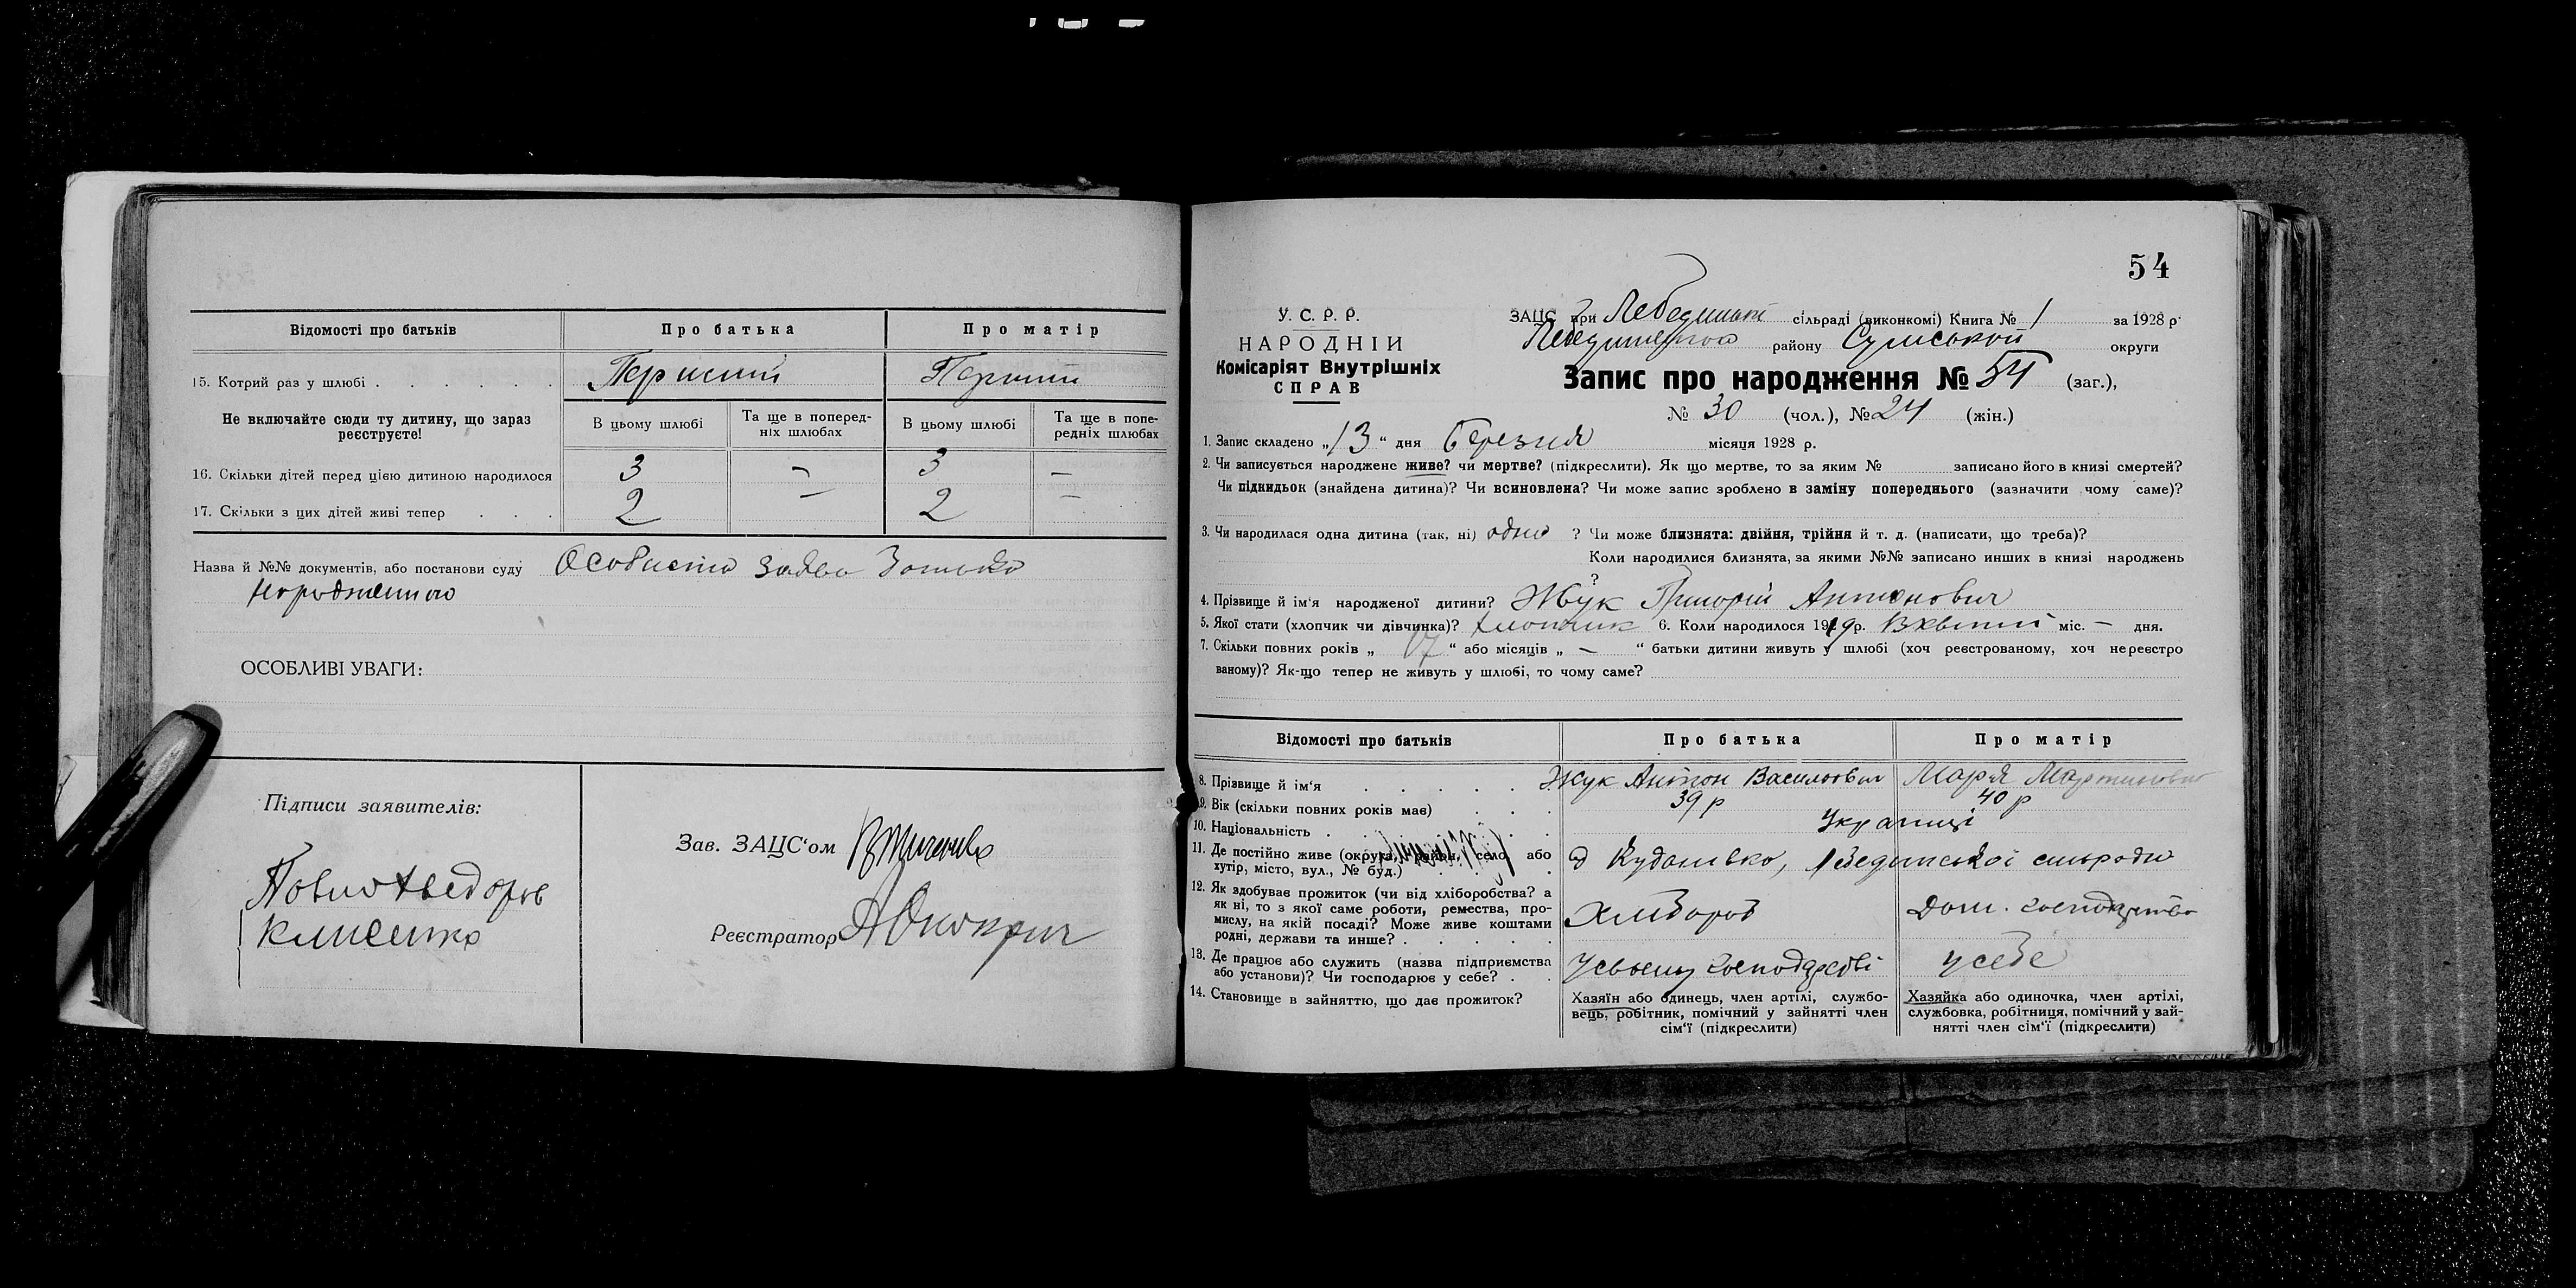 Відомості про батьків
Про батька
Про матір
15. Котрий раз у шлюбі
Перший
Перший
Не включайте сюди ту дитину, що зараз реєструєте!
В цьому шлюбі
Та ще в поперед-
ніх шлюбах
В цьому шлюбі
Та ще в попе-
редніх шлюбах
16. Скільки дітей перед цією дитиною народилося
3 — 3 —
17. Скільки з цих дітей живі тепер
2 — 2 —
Назва й №№ документів, або постанови суду Особиста заява
ОСОБЛИВІ УВАГИ:
Підписи заявителів:
Клисенко
Зав. ЗАЦС'ом
Реєстратор
54
У. С. Р. Р.
НАРОДНІЙ
Комісаріят Внутрішніх
СПРАВ
ЗАЦС при Лебединській сільраді (виконкомі) Книга № 1 за 1928 р.
Лебединського району Сумської округи
Запис про народження № 54 (заг.),
№ 30 (чол.), № 24 (жін.)
1. Запис складено „13“ дня Березня місяця 1928 р.
2. Чи записується народжене живе? чи мертве? (підкреслити). Як що мертве, то за яким № записано його в книзі смертей?
Чи підкидьок (знайдена дитина)? Чи всиновлена? Чи може запис зроблено в заміну попереднього (зазначити чому саме)?
3. Чи народилася одна дитина (так, ні) одна ? Чи може близнята: двійня, трійня й т. д. (написати, що треба)?
Коли народилися близнята, за якими №№ записано инших в книзі народжень
?
4. Прізвище й ім'я народженої дитини? Жук Григорій Антонович
5. Якої стати (хлопчик чи дівчинка)? хлопчик 6. Коли народилося 1919р. В квітні міс. — дня.
7. Скільки повних років „17“ або місяців „—“ батьки дитини живуть у шлюбі (хоч реєстрованому, хоч нереєстро
ваному)? Як-що тепер не живуть у шлюбі, то чому саме?
Відомості про батьків
Про батька
Про матір
8. Прізвище й ім'я
Жук Антон Васильович
Марія Мартиновна
9. Вік (скільки повних років має)
39 р
40 р
10. Національність
Українці
11. Де постійно живе (округа, район, село, або
хутір, місто, вул., № буд.)
Лебединської сільради
12. Як здобуває прожиток (чи від хліборобства? а
як ні, то з якої саме роботи, ремества, про-
мислу, на якій посаді? Може живе коштами
родні, держави та инше?
Хлібороб
Дом. господарство
13. Де працює або служить (назва підприємства
або установи)? Чи господарює у себе?
У своєму господарстві
у себе
14. Становище в зайняттю, що дає прожиток?
Хазяїн або одинець, член артілі, службо-
вець, робітник, помічний у зайнятті член
сім'ї (підкреслити)
Хазяйка або одиночка, член артілі,
службовка, робітниця, помічний у зай-
нятті член сім'ї (підкреслити)